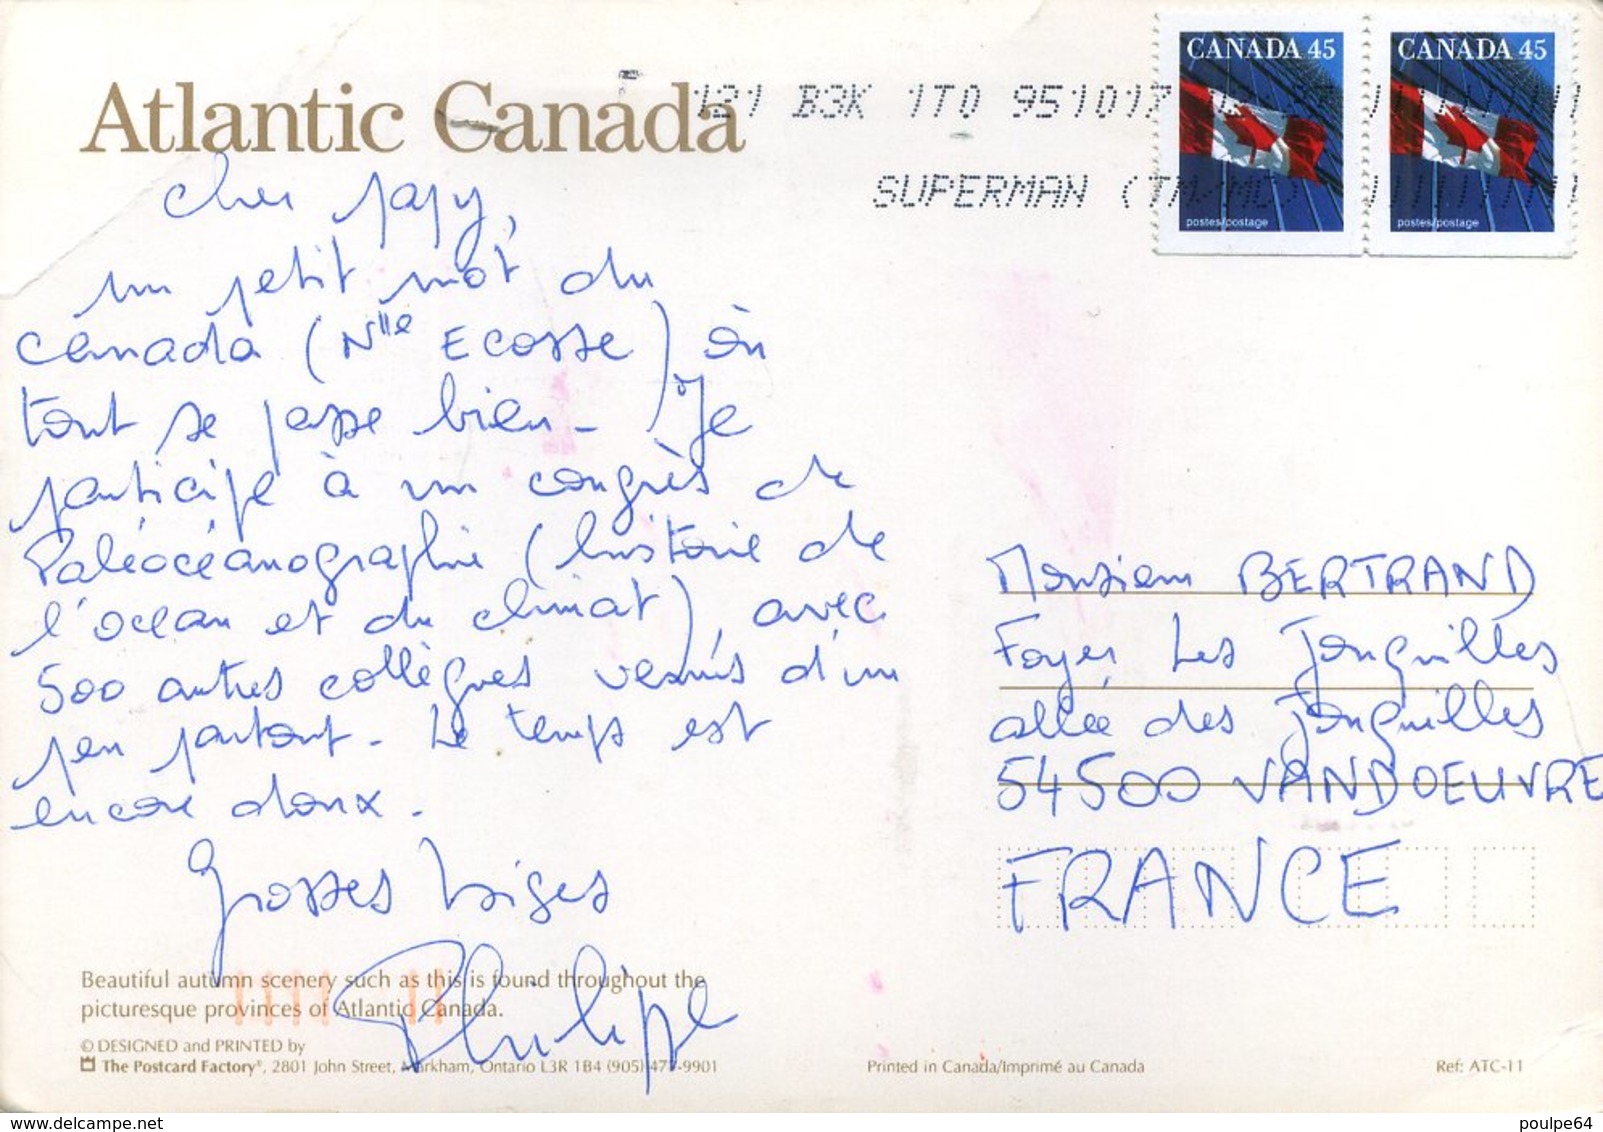 Atlantic Canada
CANADA 45
CANADA 45
B3K 1T0 951017
SUPERMAN (TM/MD)
postes/postage
postes/postage
Cher papy,
un petit mot du
Canada (Nlle Ecosse) où
tout se passe bien - Je
participe à un congrès de
Paléocéanographie (histoire de
l'océan et du climat), avec
500 autres collègues venus d'un
peu partout - Le temps est
encore doux.
Grosses bises
Philippe
Monsieur BERTRAND
Foyer Les Jonquilles
allée des Jonquilles
54500 VANDOEUVRE
FRANCE
Beautiful autumn scenery such as this is found throughout the
picturesque provinces of Atlantic Canada.
© DESIGNED and PRINTED by
The Postcard Factory®, 2801 John Street, Markham, Ontario L3R 1B4 (905) 477-9901
Printed in Canada/Imprimé au Canada
Ref: ATC-11
delcampe.net
poulpe64